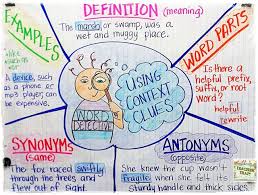 DEFINITION (meaning)
The marsh or swamp, was a
wet and muggy place.
EXAMPLES
A device, such
as a phone or
mp3 player can
be expensive.
WORD PARTS
Is there a
helpful prefix,
suffix, or root
word?
helpful
rewrite
USING
CONTEXT
CLUES
WORD
DETECTIVE
SYNONYMS
(same)
The fox raced swiftly
through the trees and
flew out of sight.
ANTONYMS
(opposite)
She knew the cup wasn't
fragile when she felt its
sturdy handle and thick sides.